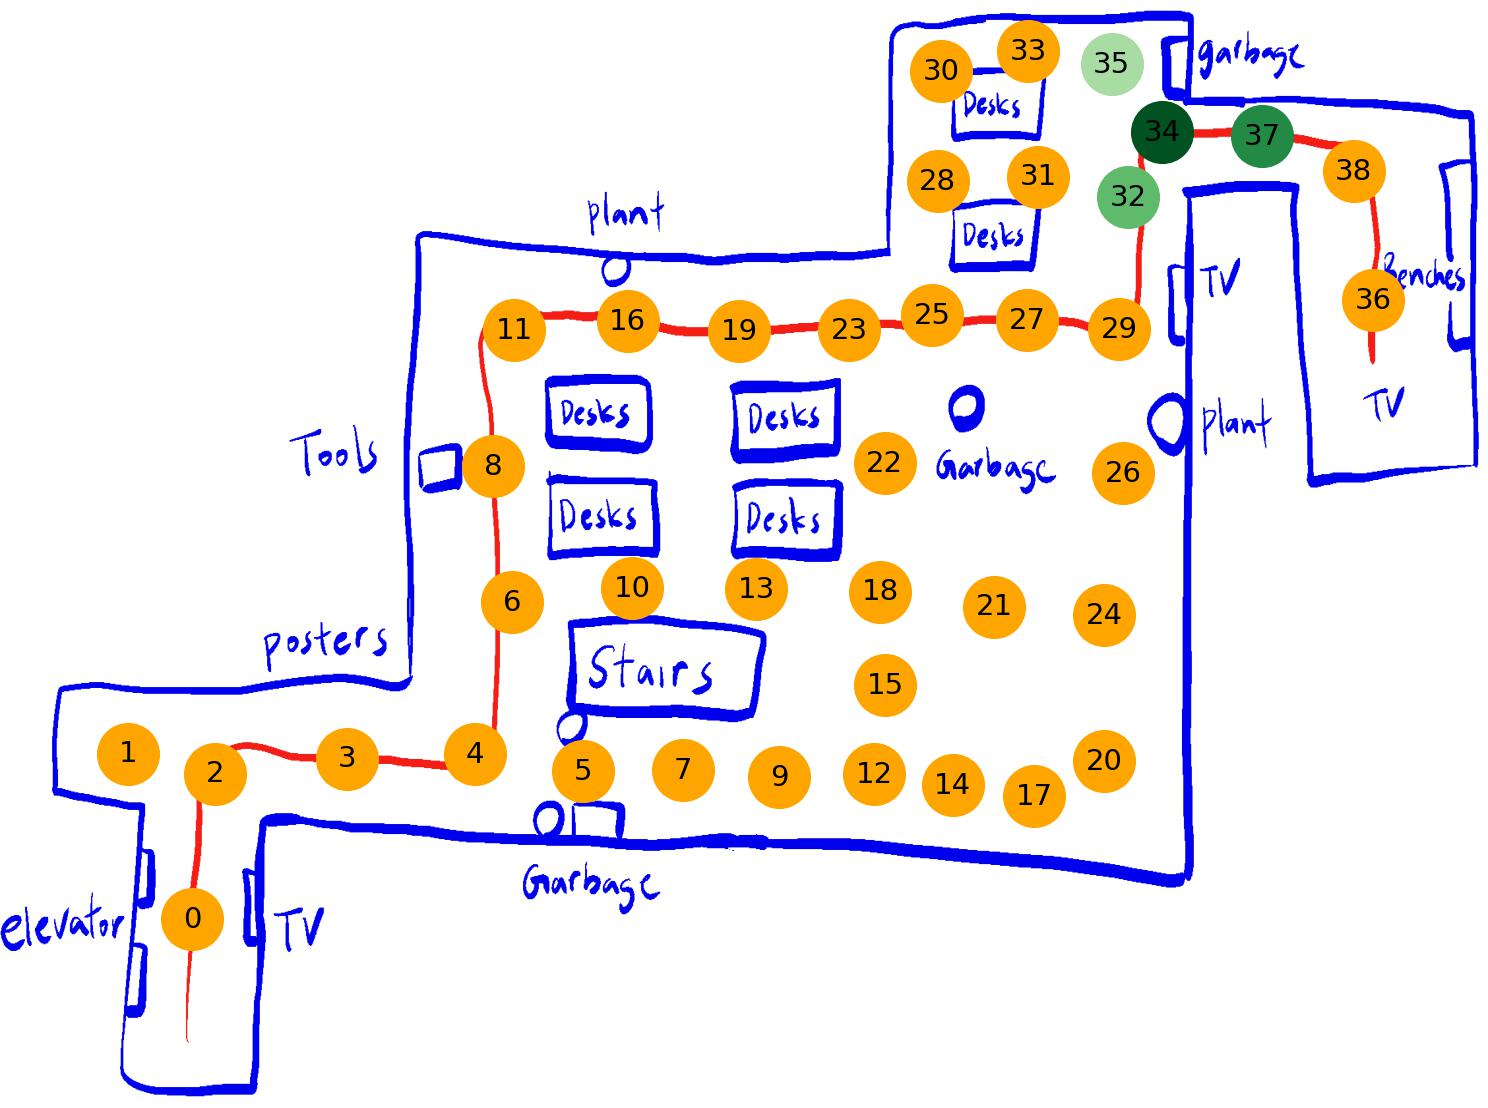 33
30
35
garbage
Desks
34
37
38
28
31
32
plant
Desks
TV
Benches
11
16
19
23
25
27
29
36
TV
Desks
Desks
plant
Tools
8
22
Garbage
26
Desks
Desks
6
10
13
18
21
24
posters
Stairs
15
1
2
3
4
5
7
9
12
14
17
20
Garbage
elevator
0
TV